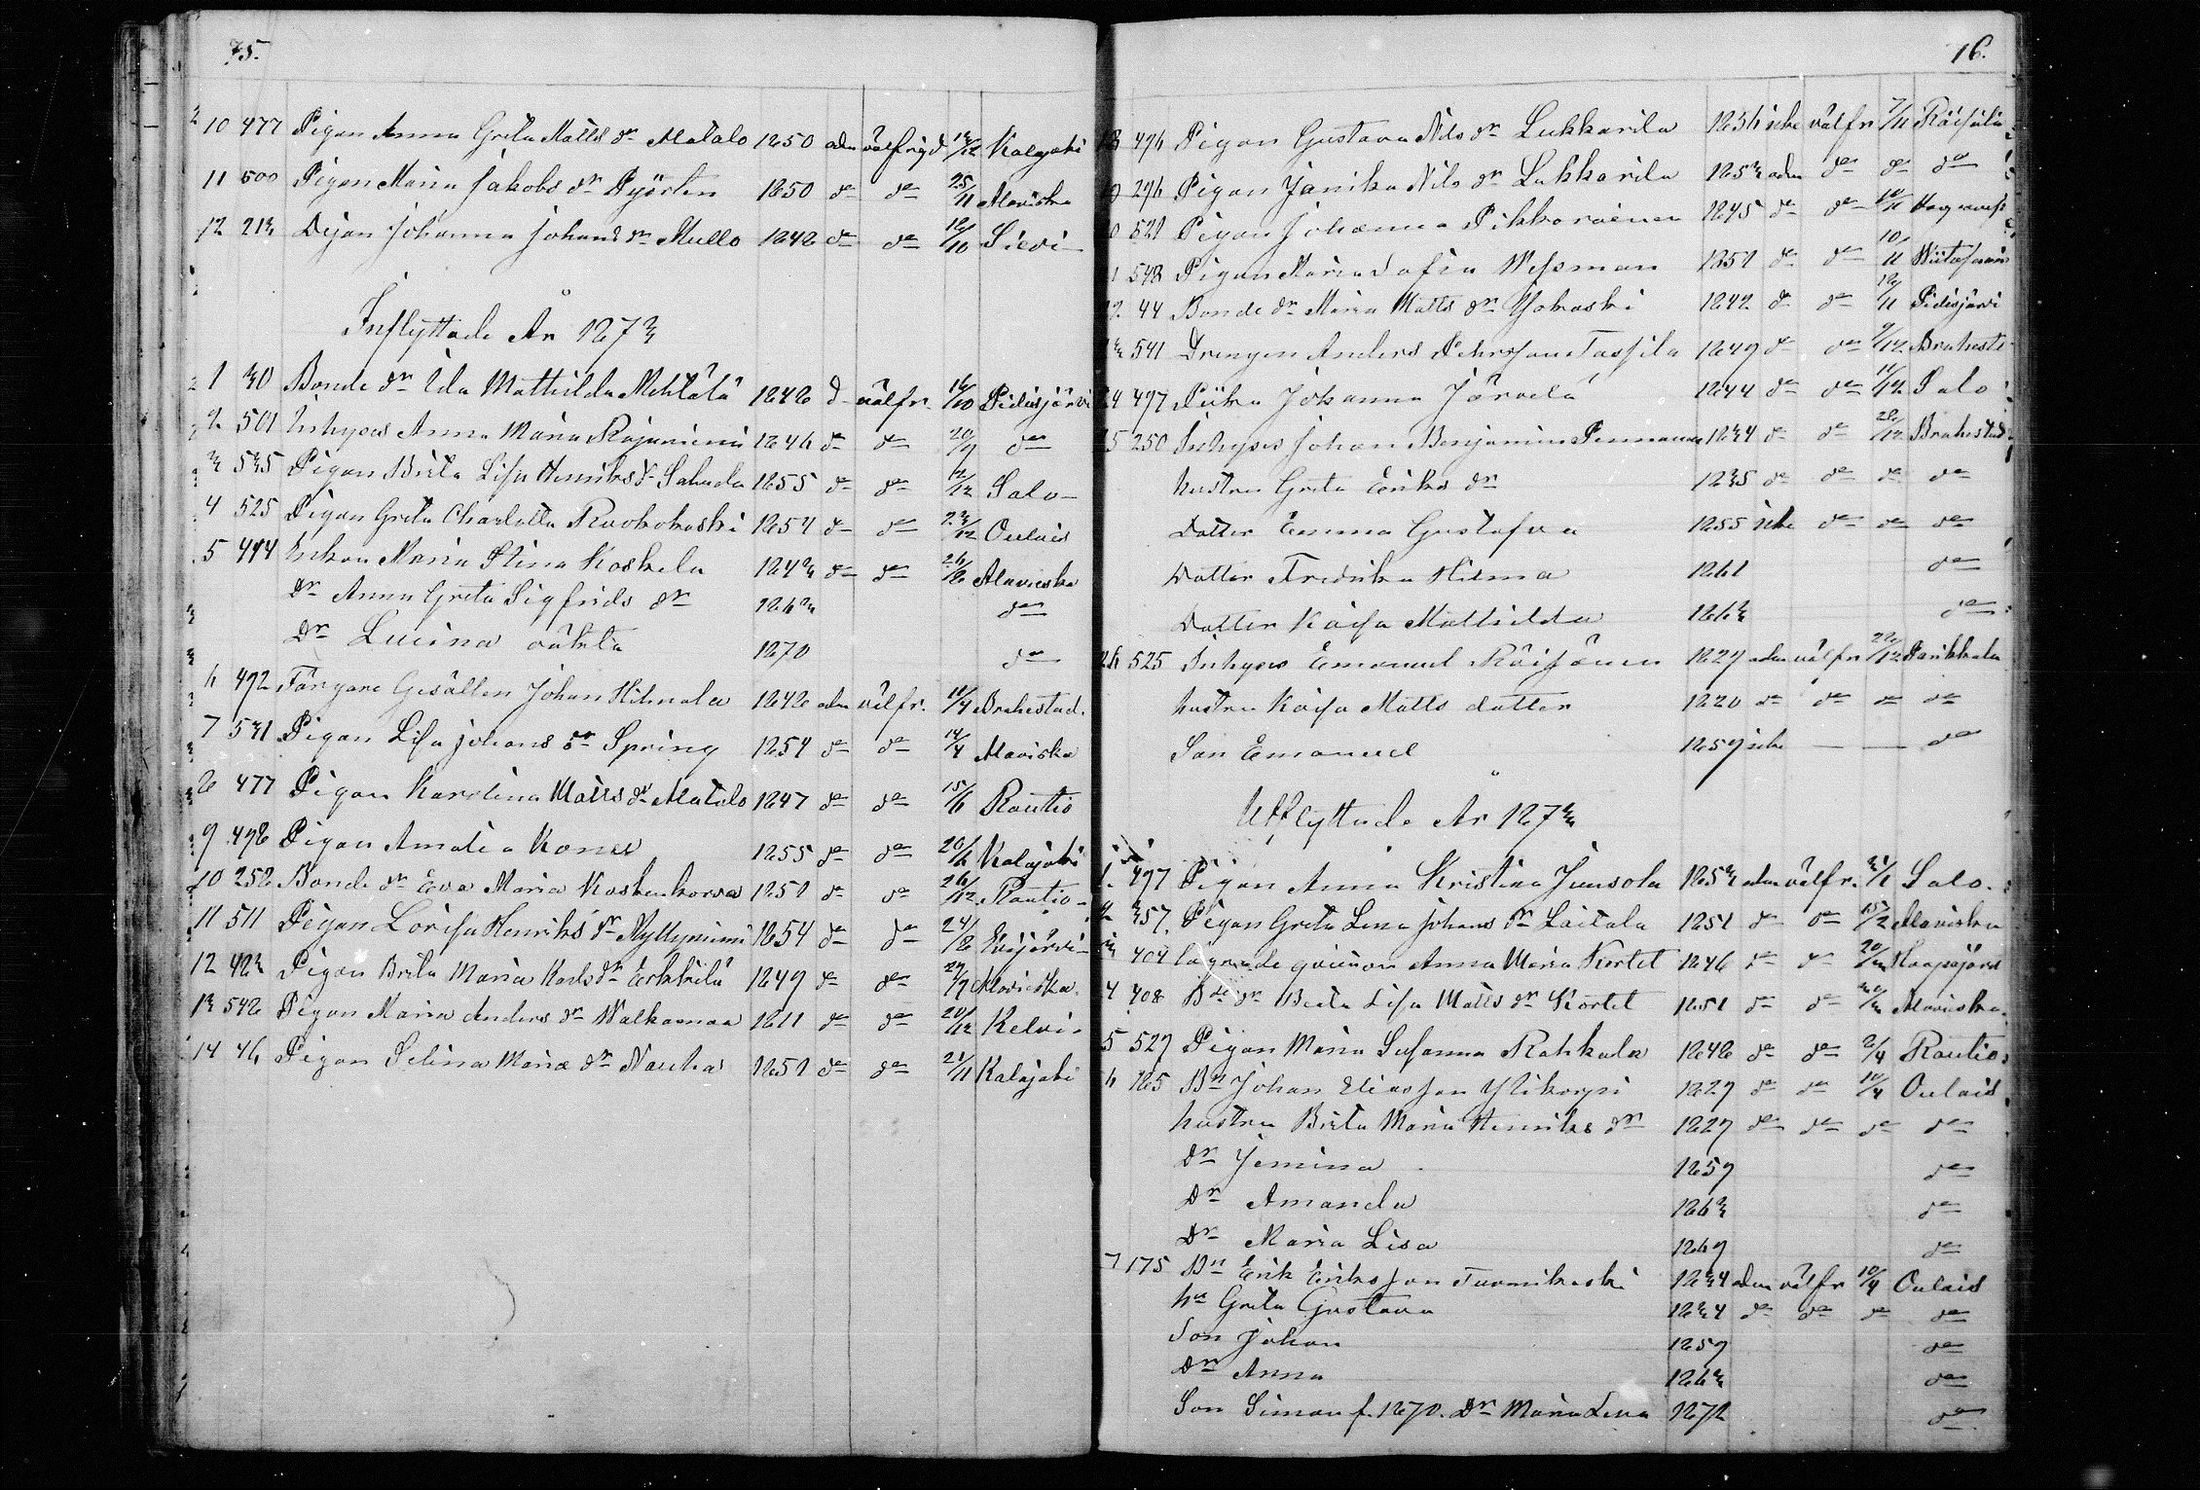 75.
10 477 Pigan Anna Greta Matts dr Matalo 1850 adm välfrejd Kalajoki
11 500 Pigan Maria Jakobs dr 1850 do do 25/11 Alaviska
12 213 Pigan Johanna Johans dr Mullo 1842 do do 12/10 Sievi
Inflyttade År 1873
1 30 Bonde dr Ida Mathilda Mehtälä 1848 do välfr. 16/10 Pidisjärvi
2 501 Inhyses Anna Maria Rajaniemi 1846 do do 20/9 do
3 535 Pigan Brita Lisa Henriks dr 1855 do do 12/12 Salo
4 525 Pigan Greta Charlotta Ruokokoski 1854 do do 23/12 Oulais
5 444 Enkan Maria Stina Koskela 1843 do do 26/8 Alavieska
dr Anna Greta Sigfrids dr 1863 do
Dr Lucina oäkta 1870 do
6 492 Färgare Gesällen Johan Hilmala 1848 adm välfr. 11/4 Brahestad.
7 531 Pigan Lisa Johans dr Spring 1854 do do 14/4 Alaviska
8 477 Pigan Karolina Matts dr Matalo 1847 do do 15/6 Rautio
9 498 Pigan Amalia Konu 1855 do do Kalajoki
10 252 Bonde dr Eva Maria Koskenkorva 1851 do do 26/12 Rautio
11 511 Pigan Lovisa Henriks dr Kyllyniemi 1854 do do 24/8 Evijärvi
12 423 Pigan Brita Maria Karls dr Erkkilä 1849 do do 27/9 Alavieska
13 542 Pigan Maria Anders dr Walkamaa 18 do do 20/12 Kelviå
14 46 Pigan Selina Maria dr Nauha 1851 do do 21/11 Kalajoki
16.
18 496 Pigan Gustava Nils dr Lukkarila 1856 icke välfr 7/11
19 296 Pigan Janika Nils dr Lukkarila 1853 adm do do do
20 521 Pigan Johanna Pikkarainen 1845 do do 10/11
21 548 Pigan Maria Sofia Wessman 1851 do do 10/11
22 44 Bonde dr Maria Matts dr Ykoski 1842 do do 12/11 Pidisjärvi
23 541 Drengen Anders Pehrsson Tassila 1849 do do 9/12 Brahest
24 497 Piika Johanna Järvelä 1844 do do 11/12 Salo
25 250 Inhyses Johan Benjamin Pennanen 1834 do do 28/12 Brahestad
hustru Greta Eriks dr 1835 do do do do
Dotter Emma Gustafva 1855 icke do do do
Dotter Fredrika Hilma 1861 do
Dotter Kaisa Mathilda 1863 do
26 525 Inhyses Emanuel Räisänen 1827 adm välfr Parikkala
hustru Kaisa Matts dotter 1820 do do do do
Son Emanuel 1859 icke — — do
Utflyttade År 1873
1. 497 Pigan Anna Kristina Junsola 1853 adm välfr. 3/1 Salo.
2 357. Pigan Greta Lena Johans dr Laitala 1851 do do 15/2 Alaviska
3 404 Lägrade qvinnan Anna Maria Kortet 1846 do do 20/3 Haapajärvi
4 408 Bde dr Brita Lisa Matts dr Kortet 1851 do do Alaviska.
5 527 Pigan Maria Susanna Rahkala 1848 do do 2/4 Rautio
6 165 Bn Johan Eliasson Ylikorpi 1827 do do 10/4 Oulais
hustru Brita Maria Henriks dr 1827 do do do do
Dr Jemina 1859 do
Dr Amanda 1863 do
Dr Maria Lisa 1869 do
7 175 Bn Erik Eriksson Tuomikoski 1834 adm välfr 10/4 Oulais
hu Greta Gustava 1834 do do do do
Son Johan 1859 do
Dr Anna 1863 do
Son Simon f. 1870. Dr Maria Lena 1872 do